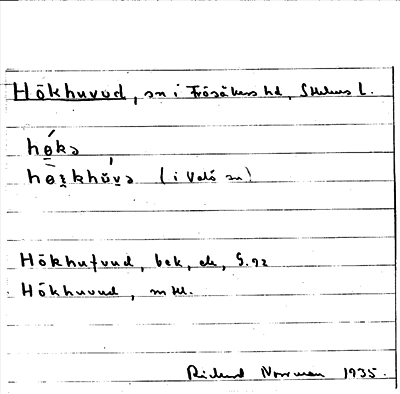 Hökhuvud, sn i Frösåkers hd, Sthlms l.
hǿ̱kə
hø̱̀ʐkhŭ́v̱ə (i Valö sn)
Hökhufvud, bek, ek, G.92
Hökhuvud, mtl.
Richard Norrman 1935.